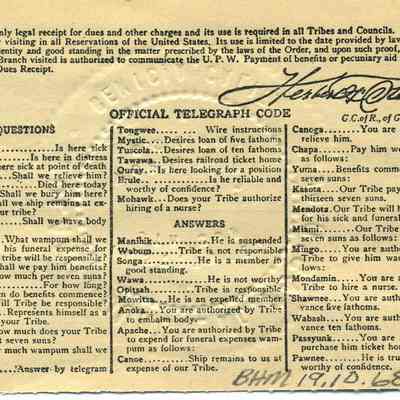 nly legal receipt for dues and other charges and its use is required in all Tribes and Councils.
visiting in all Reservations of the United States. Its use is limited to the date provided by law
entity and good standing in the matter prescribed by the laws of the Order, and upon such proof,
Branch visited is authorized to communicate the U. P. W. Payment of benefits or pecuniary aid
Dues Receipt.
G.C.of R., of G
OFFICIAL TELEGRAPH CODE
QUESTIONS
Is here sick
Is here in distress
here sick at point of death
Shall we relieve him?
Died here today
Shall we bury him here?
all we ship remains at ex-
r tribe?
Shall we have body
What wampum shall we
his funeral expense for
tribe will be responsible?
hall we pay him benefits?
ow much per seven suns?
For how long?
n do benefits commence?
ill Tribe be responsible?
Represents himself as a
your Tribe.
ow much does your Tribe
t seven suns?
ow much wampum shall
Answer by telegram
Tongwee..... .... Wire instructions
Mystic.... Desires loan of five fathoms
Tuscola... Desires loan of ten fathoms
Tawawa.. Desires railroad ticket home
Ouray.... Is here looking for a position
Erule........Is he reliable and
worthy of confidence?
Mohawk.. Does your Tribe authorize
hiring of a nurse?
ANSWERS
Manhik........He is suspended
Wabum...... Tribe is not responsible
Songa ........ He is a number in
good standing.
Wawa...........He is not worthy
Opitsah......Tribe is responsible
Mowitza....He is an expelled member
Anoka....You are authorized by Tribe
to embalm body.
Apache...You are authorized by Tribe
to expend for funeral expenses wam-
pum as follows:
Canoe....... Ship remains to us at
expense of our Tribe.
Canoga....... You are
relieve him.
Chapa.......Pay him we
as follows:
Yuma...... Benefits comme
seven suns.
Kasota.... Our Tribe pay
thirteen seven suns.
Mendota. Our Tribe will b
for his sick and funeral
Miami.......... Our Tribe
seven suns as follows:
Mingo....... You are auth
Tribe to give him wam
lows:
Mondamin...... You are
to hire a nurse.
Shawnee... You are author
vance five fathoms.
Wabash.... You are author
vance ten fathoms.
Passyunk.... You are auth
purchase him ticket hom
Pawnee.......... He is trust
worthy of confidence.
BHM 19.10.68